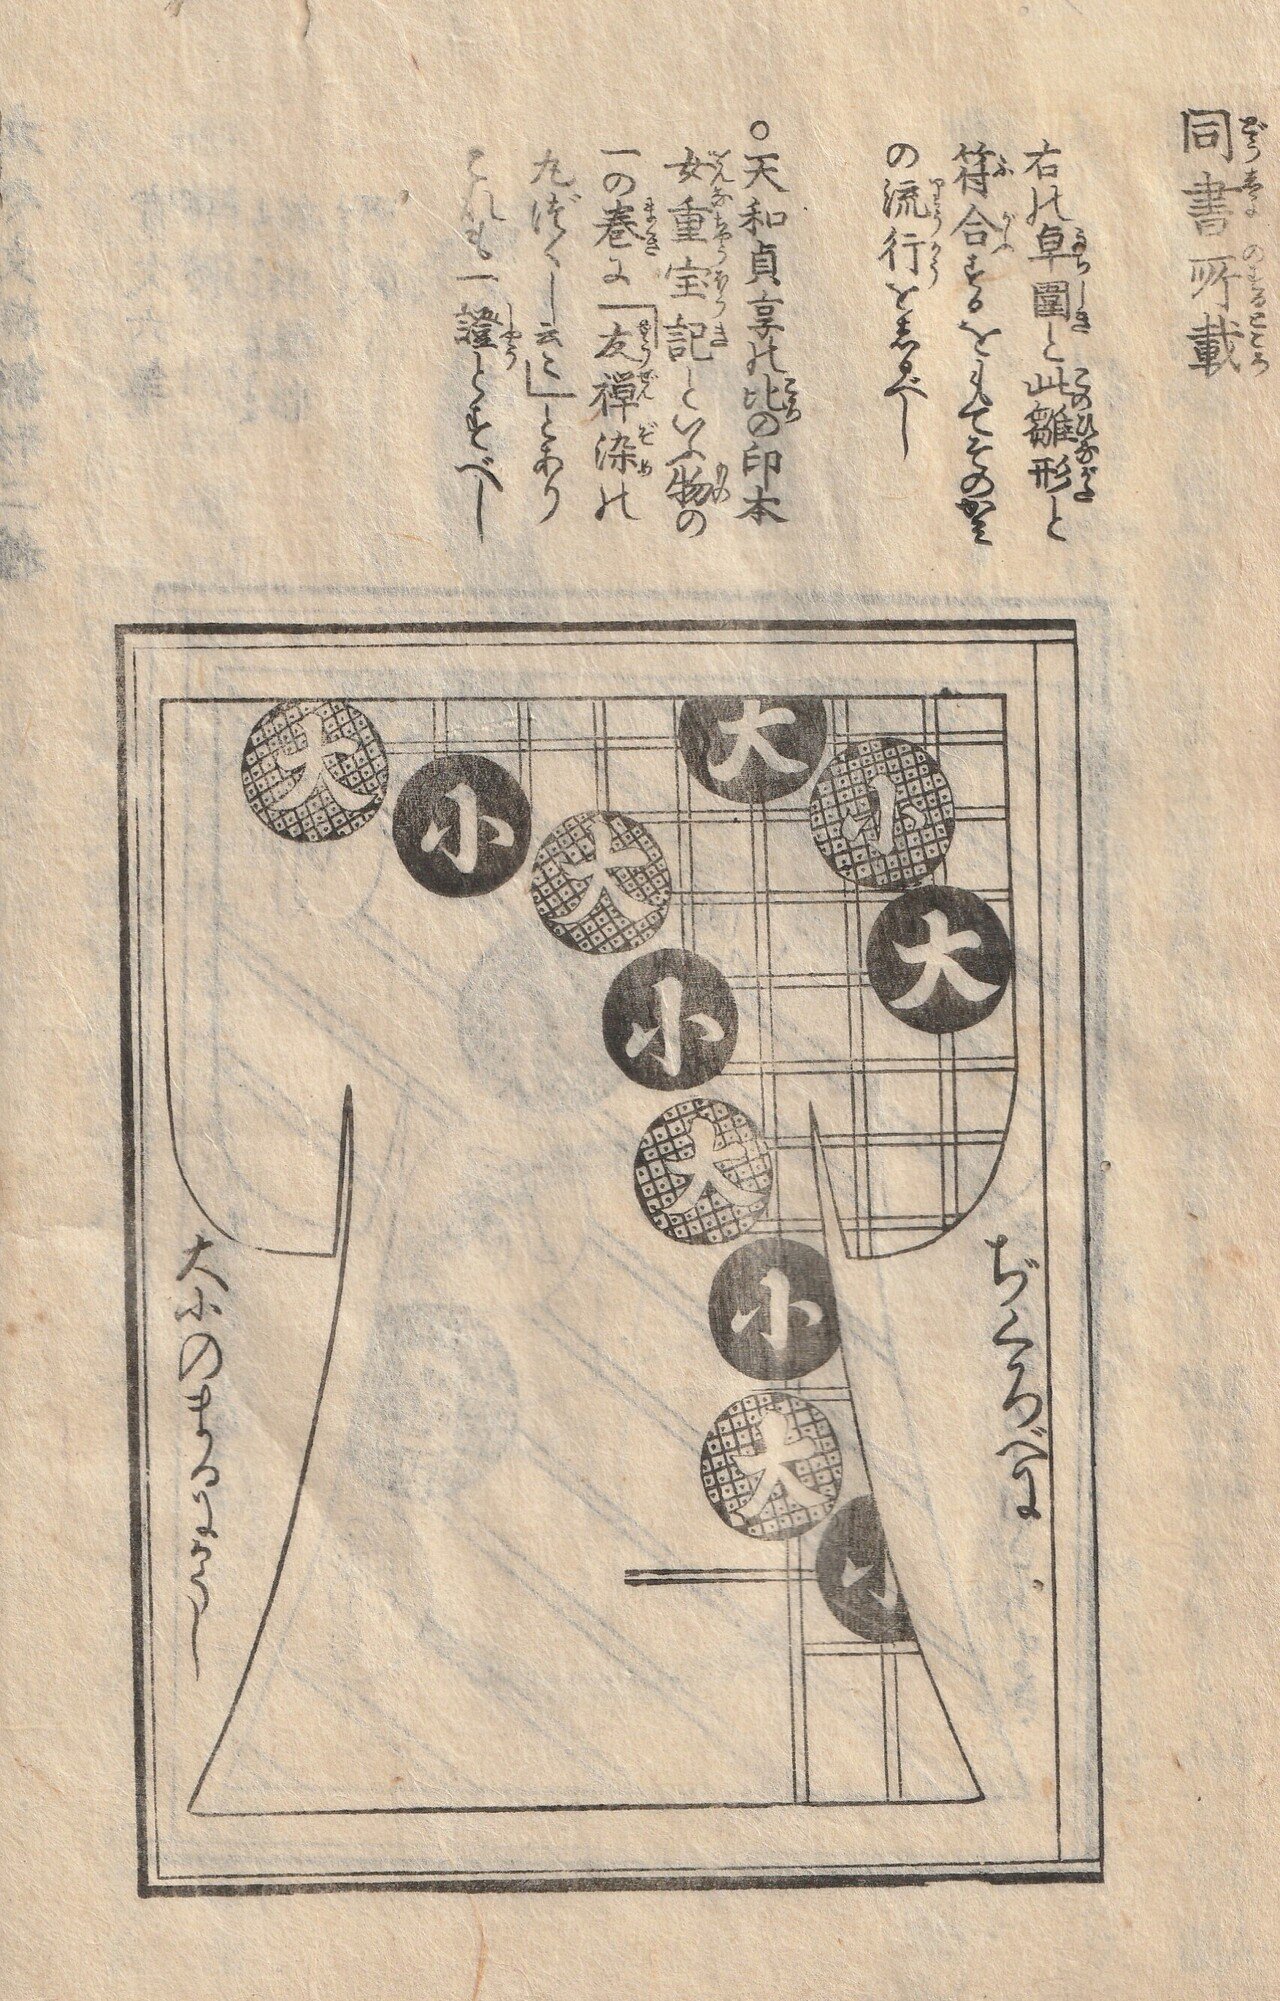 同書所載
右の卓圍と此雛形と
符合するをもてその比
の流行をしるべし
○天和貞享の比の印本
女重宝記といふ物の
一の巻に「友禅染の
丸づくし云々」とあり
これも一證とすべし
大
小
大
小
大
小
大
小
大
小
大
ぢくろべに
大小のまるづくし